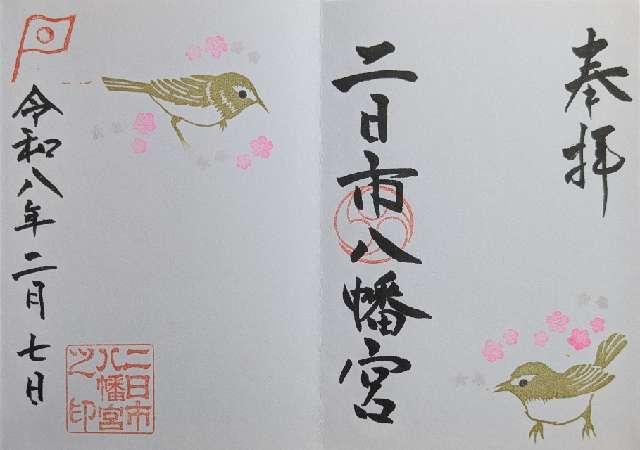 奉拝
二日市八幡宮
令和八年二月七日
二日市
八幡宮
之印